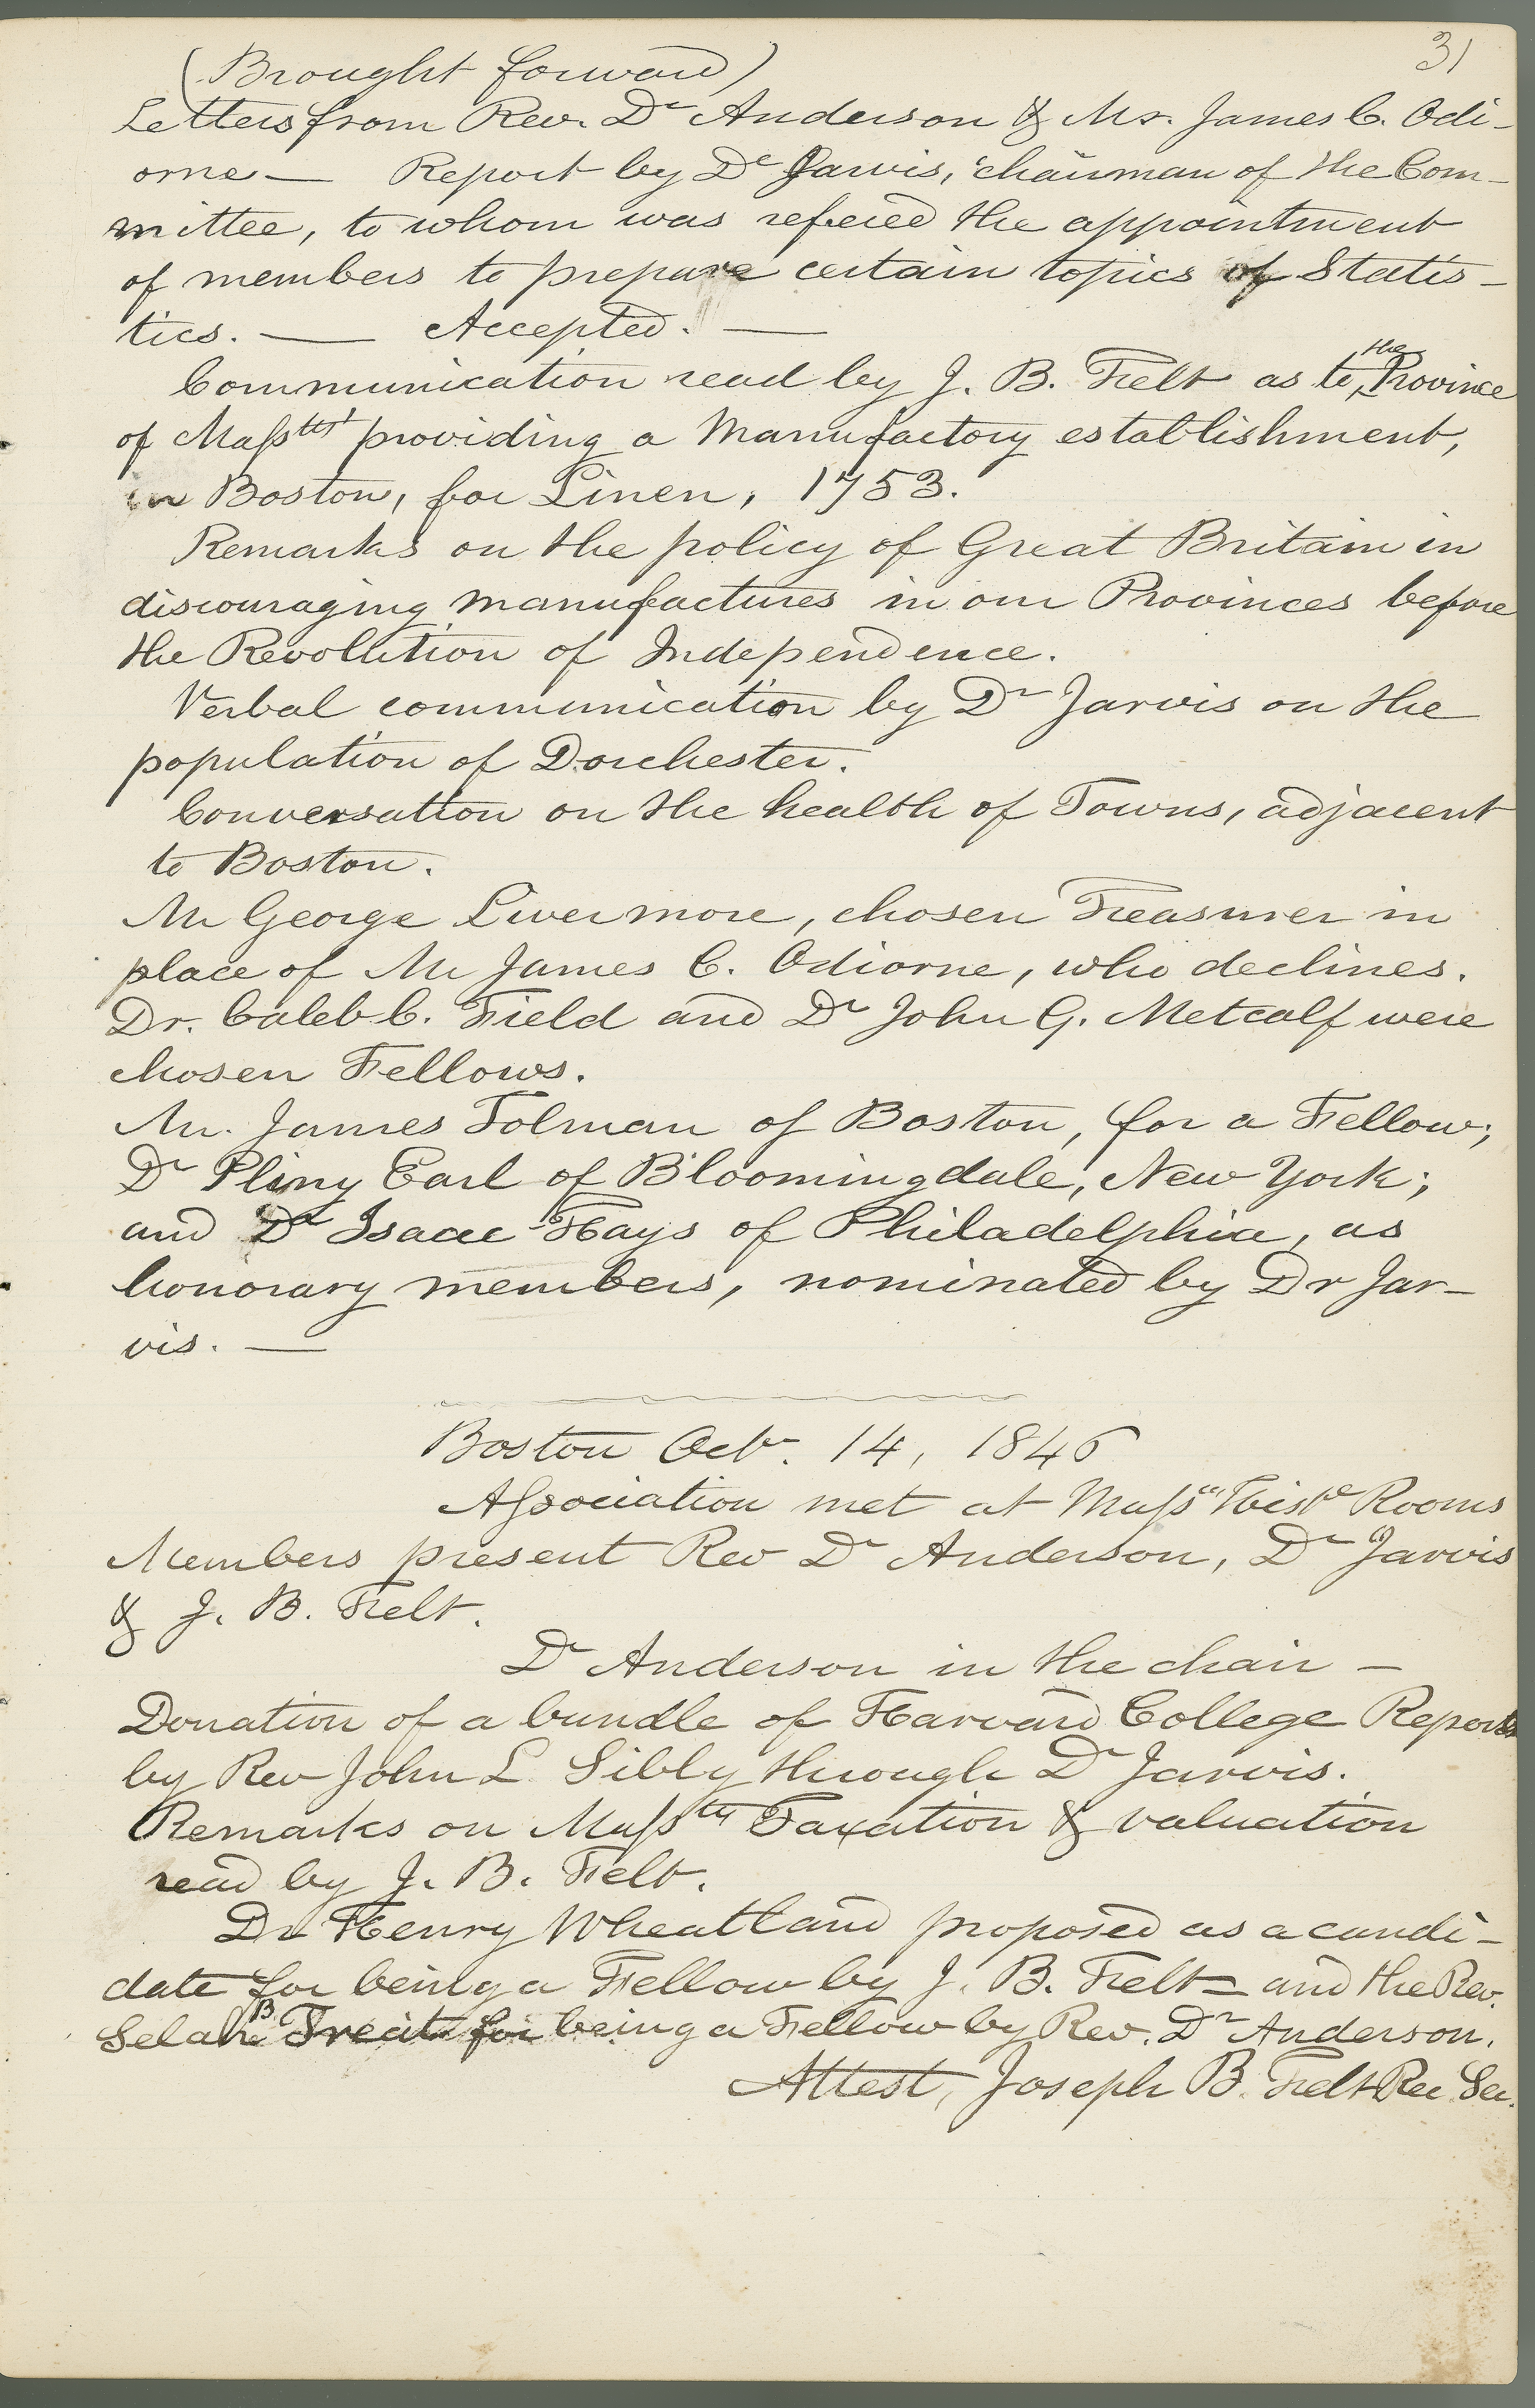 31
(Brought forward)
Letters from Rev. Dr Anderson & Mr. James C. Odi-
orne — Report by Dr Jarvis, chairman of the Com-
mittee, to whom was refered the appointment
of members to prepare certain topics of Statis-
tics. — Accepted. —
Communication read by J. B. Felt as to the Province
of Masstts providing a Manufactory establishment,
in Boston, for Linen, 1753.
Remarks on the policy of Great Britain in
discouraging manufactures in our Provinces before
the Revolution of Independence.
Verbal communication by Dr Jarvis on the
population of Dorchester.
Conversation on the health of Towns, adjacent
to Boston.
Mr George Livermore, chosen Treasurer in
place of Mr James C. Odiorne, who declines.
Dr. Caleb C. Field and Dr John G. Metcalf were
chosen Fellows.
Mr. James Tolman of Boston, for a Fellow;
Dr Pliny Earl of Bloomingdale, New York;
and Dr Isaac Hays of Philadelphia, as
honorary members, nominated by Dr Jar-
vis. —
Boston Octr. 14, 1846
Association met at Mass Histe Rooms
Members present Rev Dr Anderson, Dr Jarvis
& J. B. Felt.
Dr Anderson in the chair —
Donation of a bundle of Harvard College Reports
by Rev John L Sibly through Dr Jarvis.
Remarks on Masstts Taxation & valuation
read by J. B. Felt.
Dr Henry Wheatland proposed as a candi-
date for being a Fellow by J. B. Felt — and the Rev.
Selah B Treat for being a Fellow by Rev. Dr Anderson.
Attest, Joseph B. Felt Rec Sec.